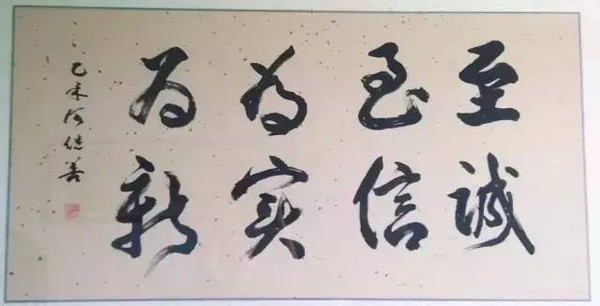 至诚
至信
为实
为新
乙未何继善